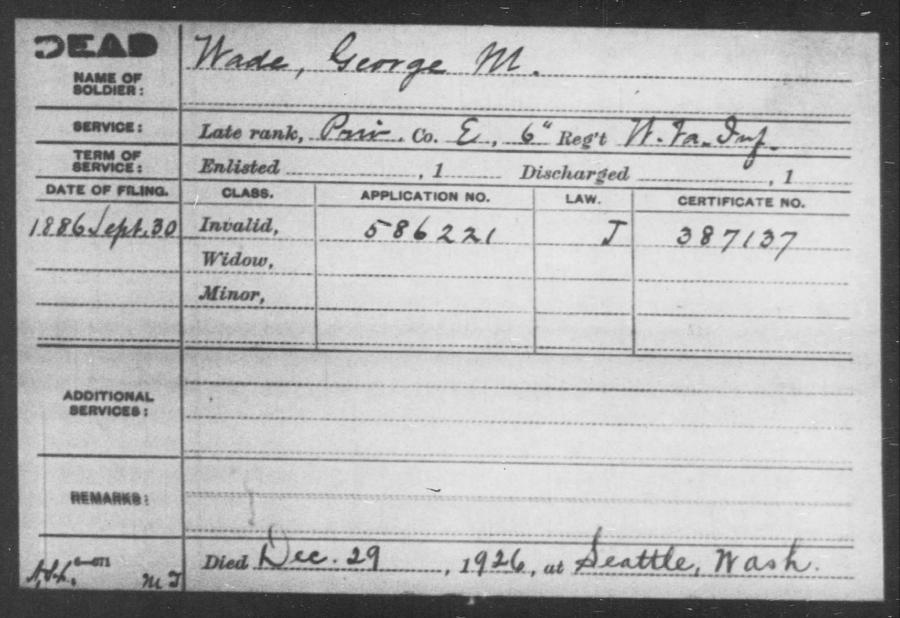 DEAD
NAME OF SOLDIER: Wade, George M.
SERVICE: Late rank, Priv. Co. E, 6" Reg't W. Va. Inf.
TERM OF SERVICE: Enlisted , 1 Discharged , 1
DATE OF FILING. CLASS. APPLICATION NO. LAW. CERTIFICATE NO.
1886 Sept. 30 Invalid, 586221 J 387137
Widow,
Minor,
ADDITIONAL SERVICES:
REMARKS:
Died Dec. 29, 1926, at Seattle, Wash.
6—071
M T